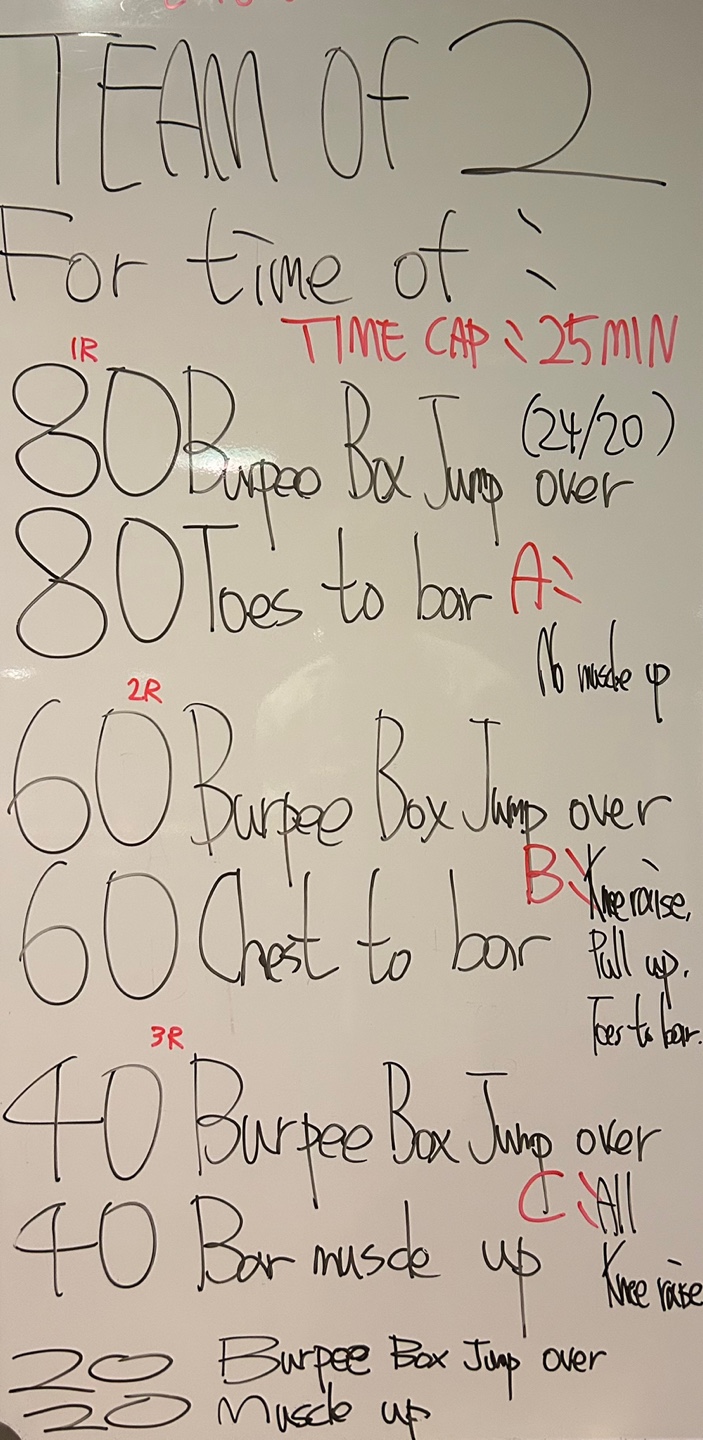 TEAM Of 2
For time of :
TIME CAP : 25 MIN
1R
80 Burpee Box Jump over (24/20)
80 Toes to bar
A:
No muscle up
2R
60 Burpee Box Jump over
60 Chest to bar
B: Knee raise,
Pull up.
Toes to bar.
3R
40 Burpee Box Jump over
40 Bar muscle up
C: All
Knee raise
20 Burpee Box Jump over
20 Muscle up